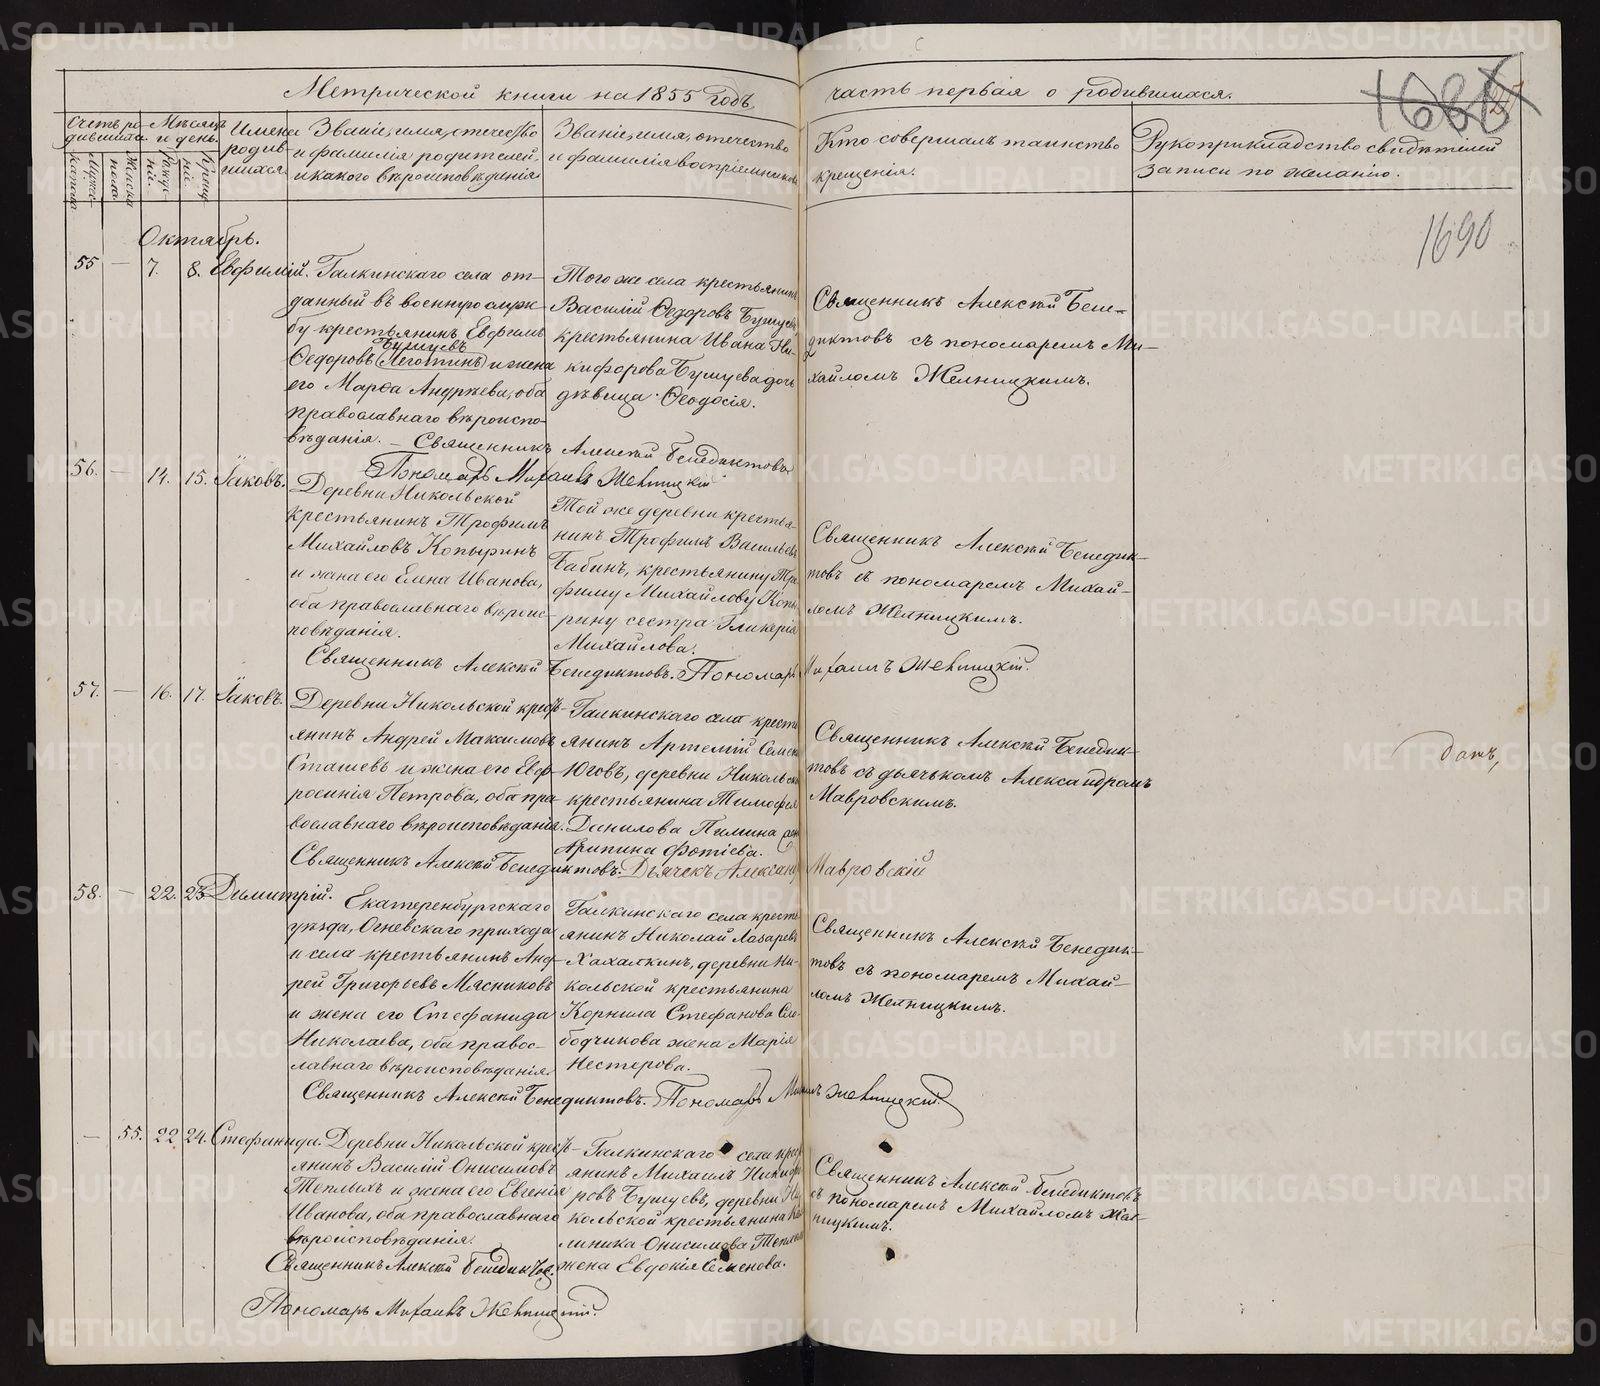 Метрической книги на 1855 годъ,
часть первая о родившихся.
Счетъ родившихся.
Мужеска пола.
Женска пола.
Мѣсяцъ и день.
Рождѣній.
Крещеній.
Имена родившихся
Званіе, имя, отечество
и фамилія родителей,
и какого вѣроисповѣданія
Званіе, имя, отечество
и фамилія воспріемниковъ
Кто совершалъ таинство
крещенія.
Рукоприкладство свидѣтелей
записи по желанію.
1690
Октябрь.
55 — 7. 8. Евфимій.
Галкинскаго села от-
данный въ военную служ-
бу крестьянинъ Евфимъ
Бушуевъ
Ѳедоровъ (Леготинъ) и жена
его Марѳа Андреева, оба
православнаго вѣроиспо-
вѣданія. — Священникъ Алексѣй Бенедиктовъ
Пономарь Михаилъ Желницкій
Того же села крестьянинъ
Василій Ѳедоровъ Бушуевъ
крестьянина Ивана Ни-
кифорова Бушуева дочь
дѣвица Ѳеодосія.
Священникъ Алексѣй Бене-
диктовъ съ пономаремъ Ми-
хайломъ Желницкимъ.
56. — 14. 15. Іаковъ.
Деревни Никольской
крестьянинъ Трофимъ
Михайловъ Копыринъ
и жена его Елена Иванова,
оба православнаго вѣроис-
повѣданія.
Священникъ Алексѣй Бенедиктовъ. Пономарь Михаилъ Желницкій.
Той же деревни крестья-
нинъ Трофимъ Васильевъ
Бабинъ, крестьянину Тро
фиму Михайлову Копы
рину сестра Гликерія
Михайлова.
Священникъ Алексѣй Бенедик-
товъ съ пономаремъ Михай-
ломъ Желницкимъ.
57. — 16. 17. Іаковъ.
Деревни Никольской кресть-
янинъ Андрей Максимовъ
Сташевъ и жена его Евф-
росинія Петрова, оба пра-
вославнаго вѣроисповѣданія.
Священникъ Алексѣй Бенедиктовъ. Дьячекъ Александръ Мавровскій
Галкинскаго села кресть
янинъ Артемій Семеновъ
Юговъ, деревни Никольской
крестьянина Тимофея
Данилова Пимина
Агрипина Фотіева.
Священникъ Алексѣй Бенедик-
товъ съ дьячькомъ Александромъ
Мавровскимъ.
58. — 22. 23. Димитрій.
Екатеренбургскаго
уѣзда, Огневскаго прихода
и села крестьянинъ Анд-
рей Григорьевъ Мясниковъ
и жена его Стефанида
Николаева, оба правос-
лавнаго вѣроисповѣданія
Священникъ Алексѣй Бенедиктовъ. Пономарь Михаилъ Желницкій.
Галкинскаго села кресть
янинъ Николай Лазаревъ
Хахалкинъ, деревни Ни-
кольской крестьянина
Корнила Стефанова Сло-
бодчикова жена Марія
Нестерова.
Священникъ Алексѣй Бенедик-
товъ съ пономаремъ Михай-
ломъ Желницкимъ.
— 55. 22 24. Стефанида.
Деревни Никольской кресть-
янинъ Василій Онисимовъ
Теплыхъ и жена его Евгенія
Иванова, оба православнаго
вѣроисповѣданія.
Священникъ Алексѣй Бенедиктовъ.
Пономарь Михаилъ Желницкій.
Галкинскаго села крест
янинъ Михаилъ Никифо
ровъ Бушуевъ, деревни Ни
кольской крестьянина Ка
линика Онисимова Теплыхъ
жена Евдокія Семенова.
Священникъ Алексѣй Бенедиктовъ
съ пономаремъ Михайломъ Жел-
ницкимъ.
METRIKI.GASO-URAL.RU